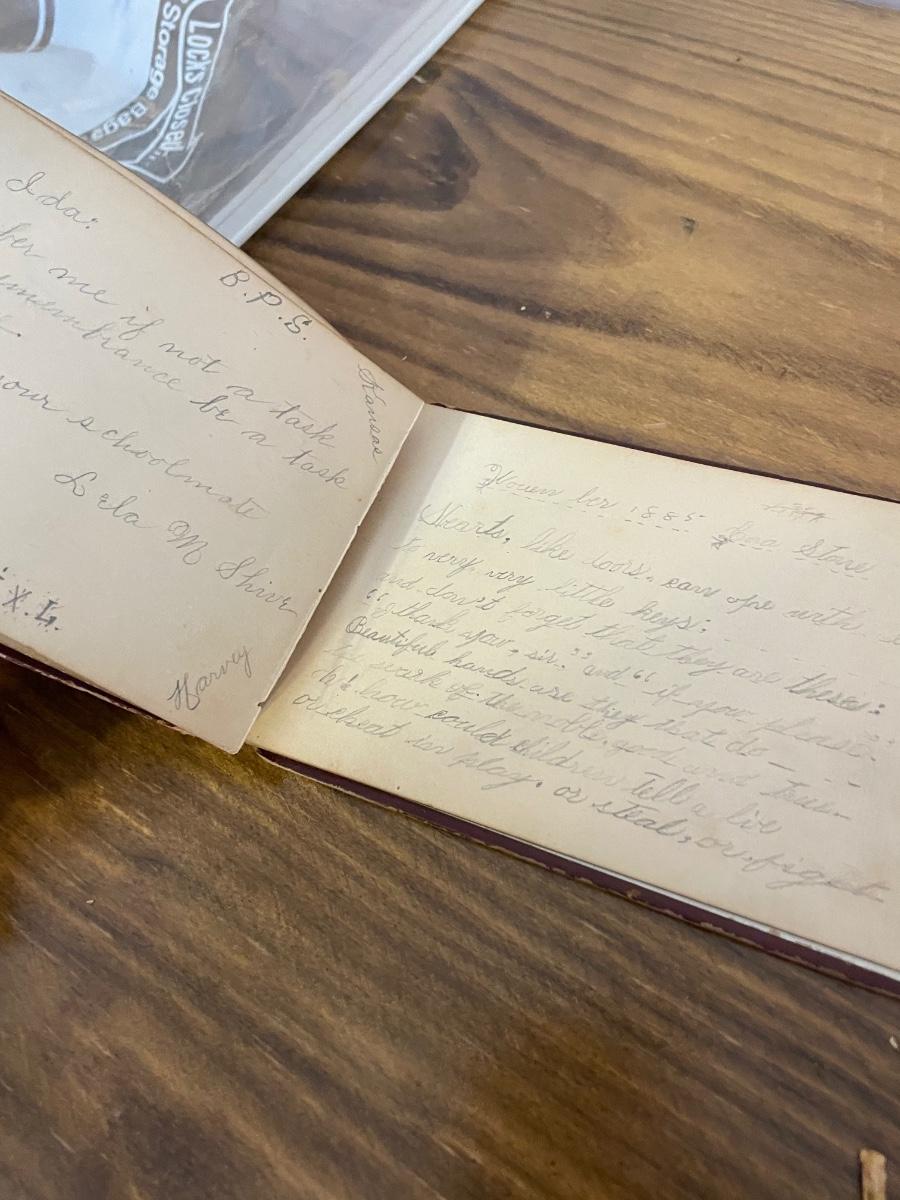 Locks Closed
Storage Bags
Ida:
B.P.S.
ber me if not a task
emeanbrance be a task
your schoolmate
Lela M Shive
Kansas
X.L.
Harvey
Nouem ber 1885 Stone
Hearts, like doors, can ope with
to very, very little keys:
and don't forget that they are these:
"I thank you, sir." and "if you please."
Beautiful hands are they that do
the work of the noble good and true
how could children Tell a lie
or cheat in play, or steal, or fight